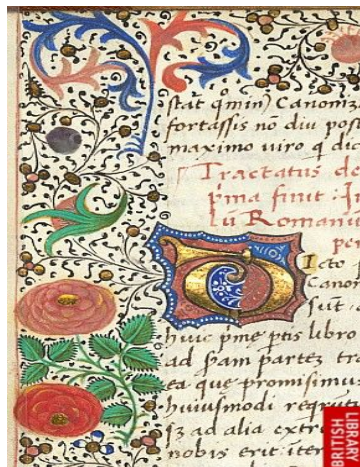 stat qmin) Canoniz
fortassis nō diu post
maximo uiro q dic
Tractatus de
pma finit : In
lu Romanu
per
Dicto
Canon
sūt
huic pme ptis libro
ad scam partez tra
ea que promisimu
huiusmodi requi
sz ad alia extr
nobis erit iter
BRITISH
LIBRARY